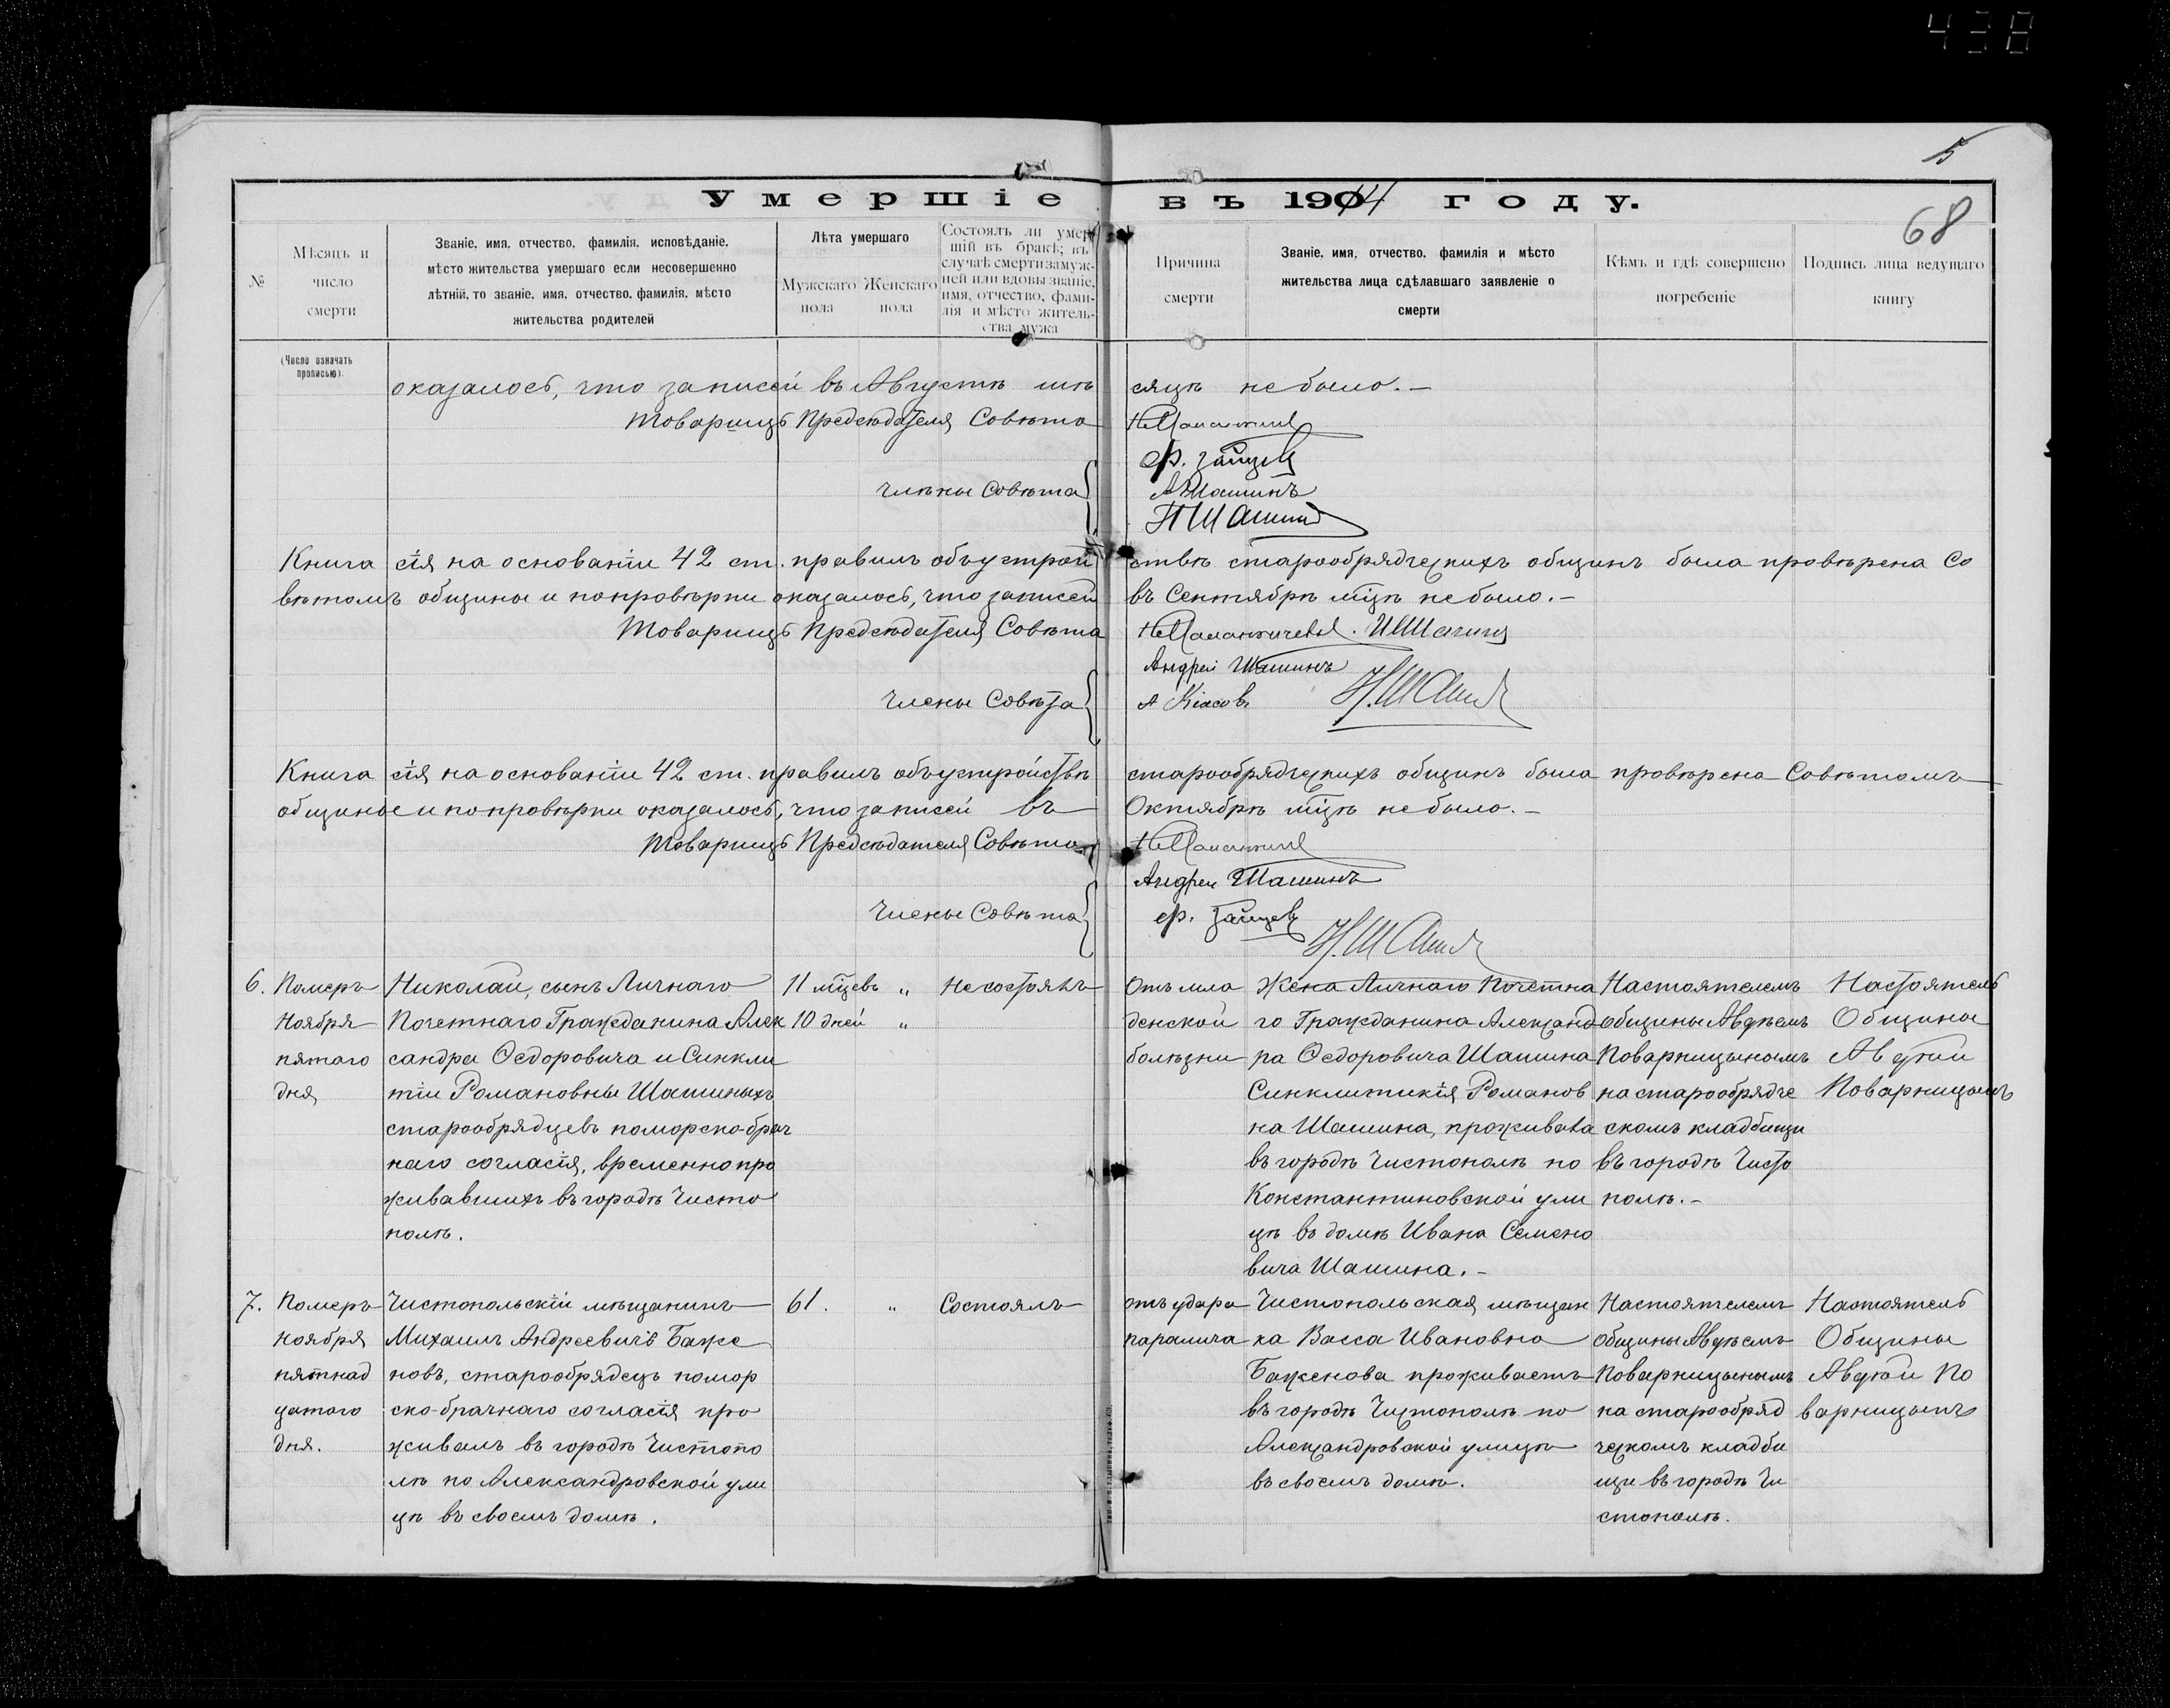 438
5
Умершіе въ 1914 году.
68
№
Мѣсяцъ и
число
смерти
Званіе, имя, отчество, фамилія, исповѣданіе,
мѣсто жительства умершаго если несовершенно
лѣтній, то званіе, имя, отчество, фамилія, мѣсто
жительства родителей
Лѣта умершаго
Мужскаго
пола
Женскаго
пола
Состоялъ ли умер
шій въ бракѣ; въ
случаѣ смерти замуж-
ней или вдовы званіе,
имя, отчество, фами-
лія и мѣсто житель-
ства мужа
Причина
смерти
Званіе, имя, отчество, фамилія и мѣсто
жительства лица сдѣлавшаго заявленіе о
смерти
Кѣмъ и гдѣ совершено
погребеніе
Подпись лица ведущаго
книгу
(Число означать
прописью).
оказалось, что записей въ Августѣ мѣ сяцѣ не было. –
Товарищъ Предсѣдателя Совѣта
Ф. Зайцевъ
Члѣны Совѣта
А Шашинъ
Н Шашинъ
Книга сія на основаніи 42 ст. правилъ объ устрой ствѣ старообрядческихъ общинъ была провѣрена Со
вѣтомъ общины и по провѣрки оказалось, что записей въ Сентябрѣ мцѣ не было. –
Товарищъ Предсѣдателя Совѣта
Андрей Шашинъ
Члены Совѣта
Н. Шашинъ
Книга сія на основаніи 42 ст. правилъ объ устройствѣ старообрядческихъ общинъ была провѣрена Совѣтомъ
общины и по провѣрки оказалось, что записей въ Октябрѣ мцѣ не было. –
Товарищъ Предсѣдателя Совѣта
Андрей Шашинъ
Члены Совѣта
Ф. Зайцевъ
Н. Шашинъ
6.
Померъ
Ноября
пятаго
дня
Николай, сынъ Личнаго
Почетнаго Гражданина Алек
сандра Ѳедоровича и Синкли
тіи Романовны Шашиныхъ
старообрядцевъ поморско-брач
наго согласія, временно про
живавшихъ въ городѣ Чисто
полѣ.
11 мцевъ "
10 дней "
Не состоялъ
Отъ мла
денской
болѣзни
Жена Личнаго Почетна
го Гражданина Александ
ра Ѳедоровича Шашина
Синклитикія Романов
на Шашина, прожива
въ городѣ Чистополѣ по
Константиновской ули
цѣ въ домѣ Ивана Семено
вича Шашина. –
Настоятелемъ
общины Авдѣемъ
Поварницынымъ
на старообрядче
скомъ кладбищи
въ городѣ Чисто
полѣ. –
Настоятель
Общины
Авдѣй
Поварницынъ
7.
Померъ
ноября
пятнад
цатого
дня.
Чистопольскій мѣщанинъ
Михаилъ Андреевичъ Баже
новъ, старообрядецъ помор
ско-брачнаго согласія про
живалъ въ городѣ Чистопо
лѣ по Александровской ули
цѣ въ своемъ домѣ.
61. "
Состоялъ
отъ удара
паралича
Чистопольская мѣщан
ка Васса Ивановна
Баженова проживаетъ
въ городѣ Чистополѣ по
Александровской улицѣ
въ своемъ домѣ.
Настоятелемъ
общины Авдѣемъ
Поварницынымъ
на старообряд
ческомъ кладби
щи въ городѣ Чи
стополѣ.
Настоятель
Общины
Авдѣй По
варницынъ